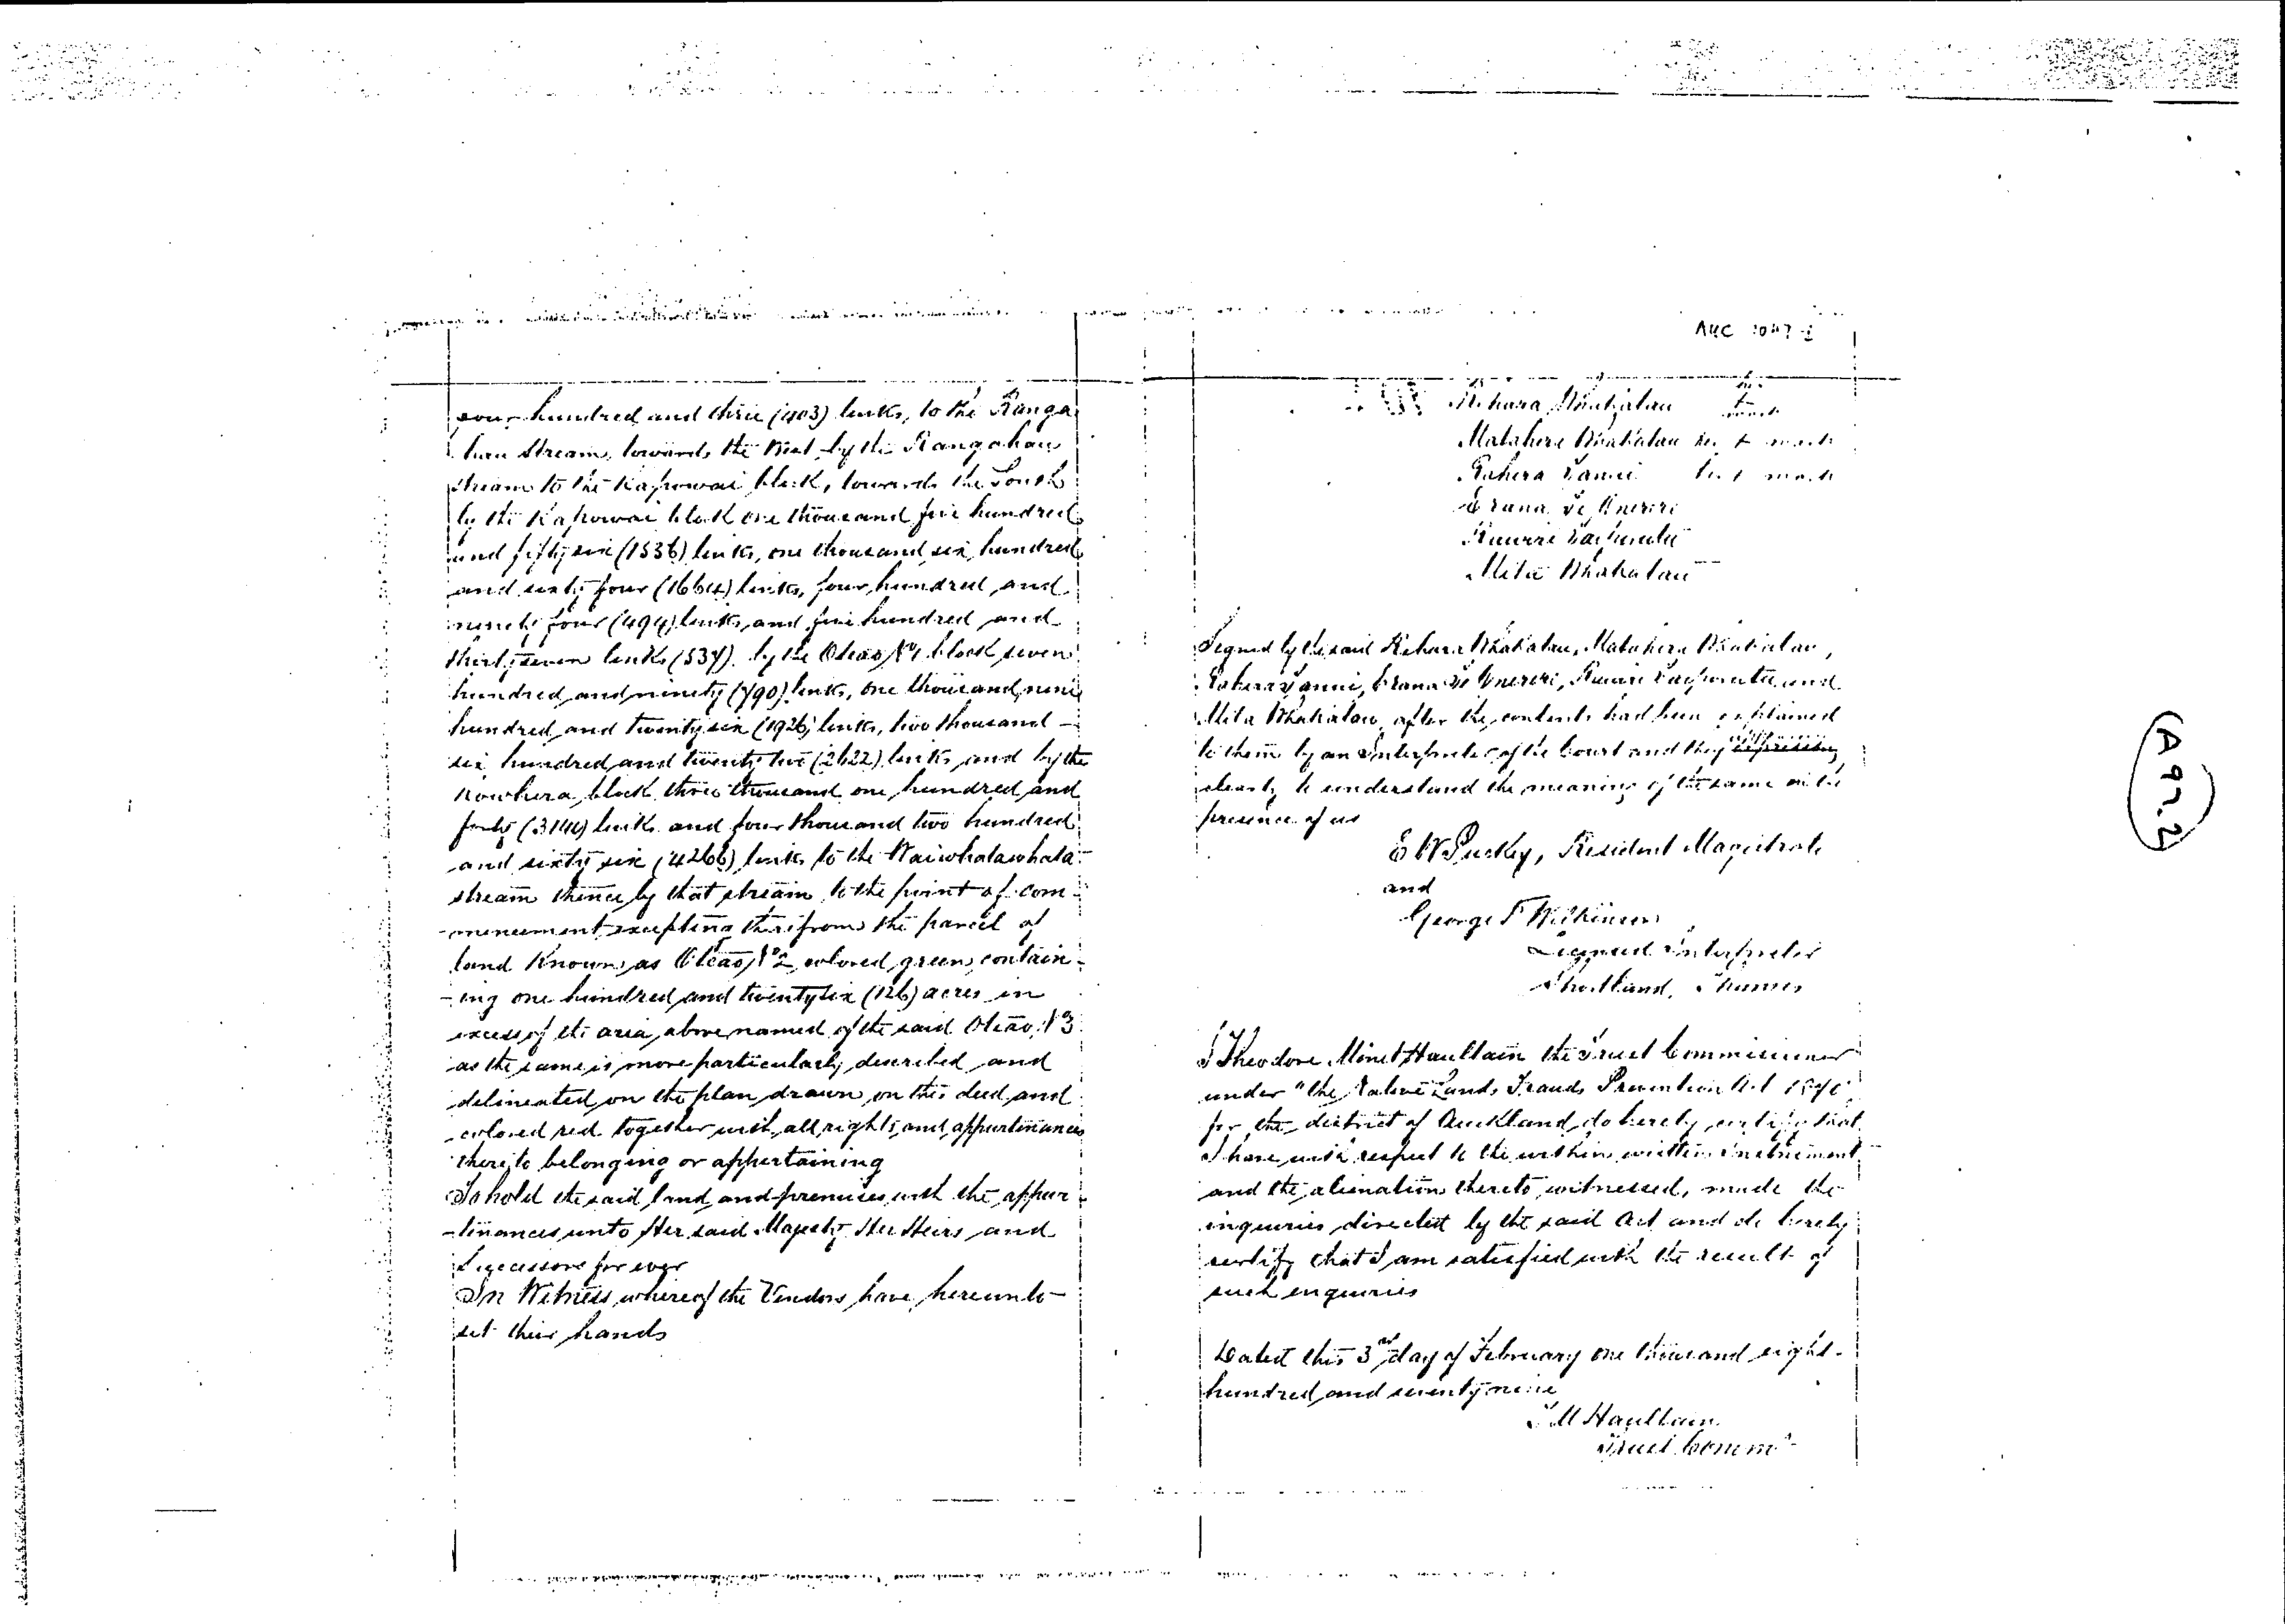 four hundred and three (403) links, to the Ranga
hau stream, towards the West by the Rangahau
stream to the Kapowai block, towards the South
by the Kapowai block one thousand five hundred
and fifty six (1536) links, one thousand six hundred
and sixty four (1664) links, four hundred and
ninety four (494) links and five hundred and
thirty seven links (537) by the Oteao No 1 block seven
hundred and ninety (790) links, one thousand nine
hundred and twenty six (1926) links, two thousand —
six hundred and twenty two (2622) links and by the
Kowhera block three thousand one hundred and
forty (3140) links and four thousand two hundred
and sixty six (4266) links to the Waiwhatawhata
stream thence by that stream to the point of com-
-mencement excepting therefrom the parcel of
land known as Oteao No 2 colored green contain-
-ing one hundred and twenty six (126) acres in
excess of the area above named of the said Oteao No 3
as the same is more particularly described and
delineated on the plan drawn on this deed and
colored red together with all rights and appurtenances
thereto belonging or appertaining
To hold the said land and premises with the appur-
-tenances unto Her said Majesty Her Heirs and
Successors for ever
In Witness whereof the Vendors have hereunto
set their hands
AUC
Rihara Whakatau x mark
Matahera Whakatau her x mark
Rahera Tanui her x mark
Erana Te
Mita Whakatau
Signed by the said Rihara Whakatau, Matahera Whakatau,
Rahera Tanui, Erana Te and
Mita Whakatau after the contents had been explained
to them by an Interpreter of the Court and they
clearly to understand the meaning of the same in the
presence of us
E W Puckey, Resident Magistrate
and
George T Wilkinson
Licensed Interpreter
Shortland, Thames
I Theodore Minet Haultain the Trust Commissioner
under "the Native Lands Frauds Prevention Act 1870"
for the district of Auckland do hereby certify that
I have with respect to the within written Instrument
and the alienation thereto witnessed, made the
inquiries directed by the said Act and do hereby
certify that I am satisfied with the result of
such enquiries
Dated this 3rd day of February one thousand eight-
hundred and seventy nine
T M Haultain
Trust Commr
A97.2